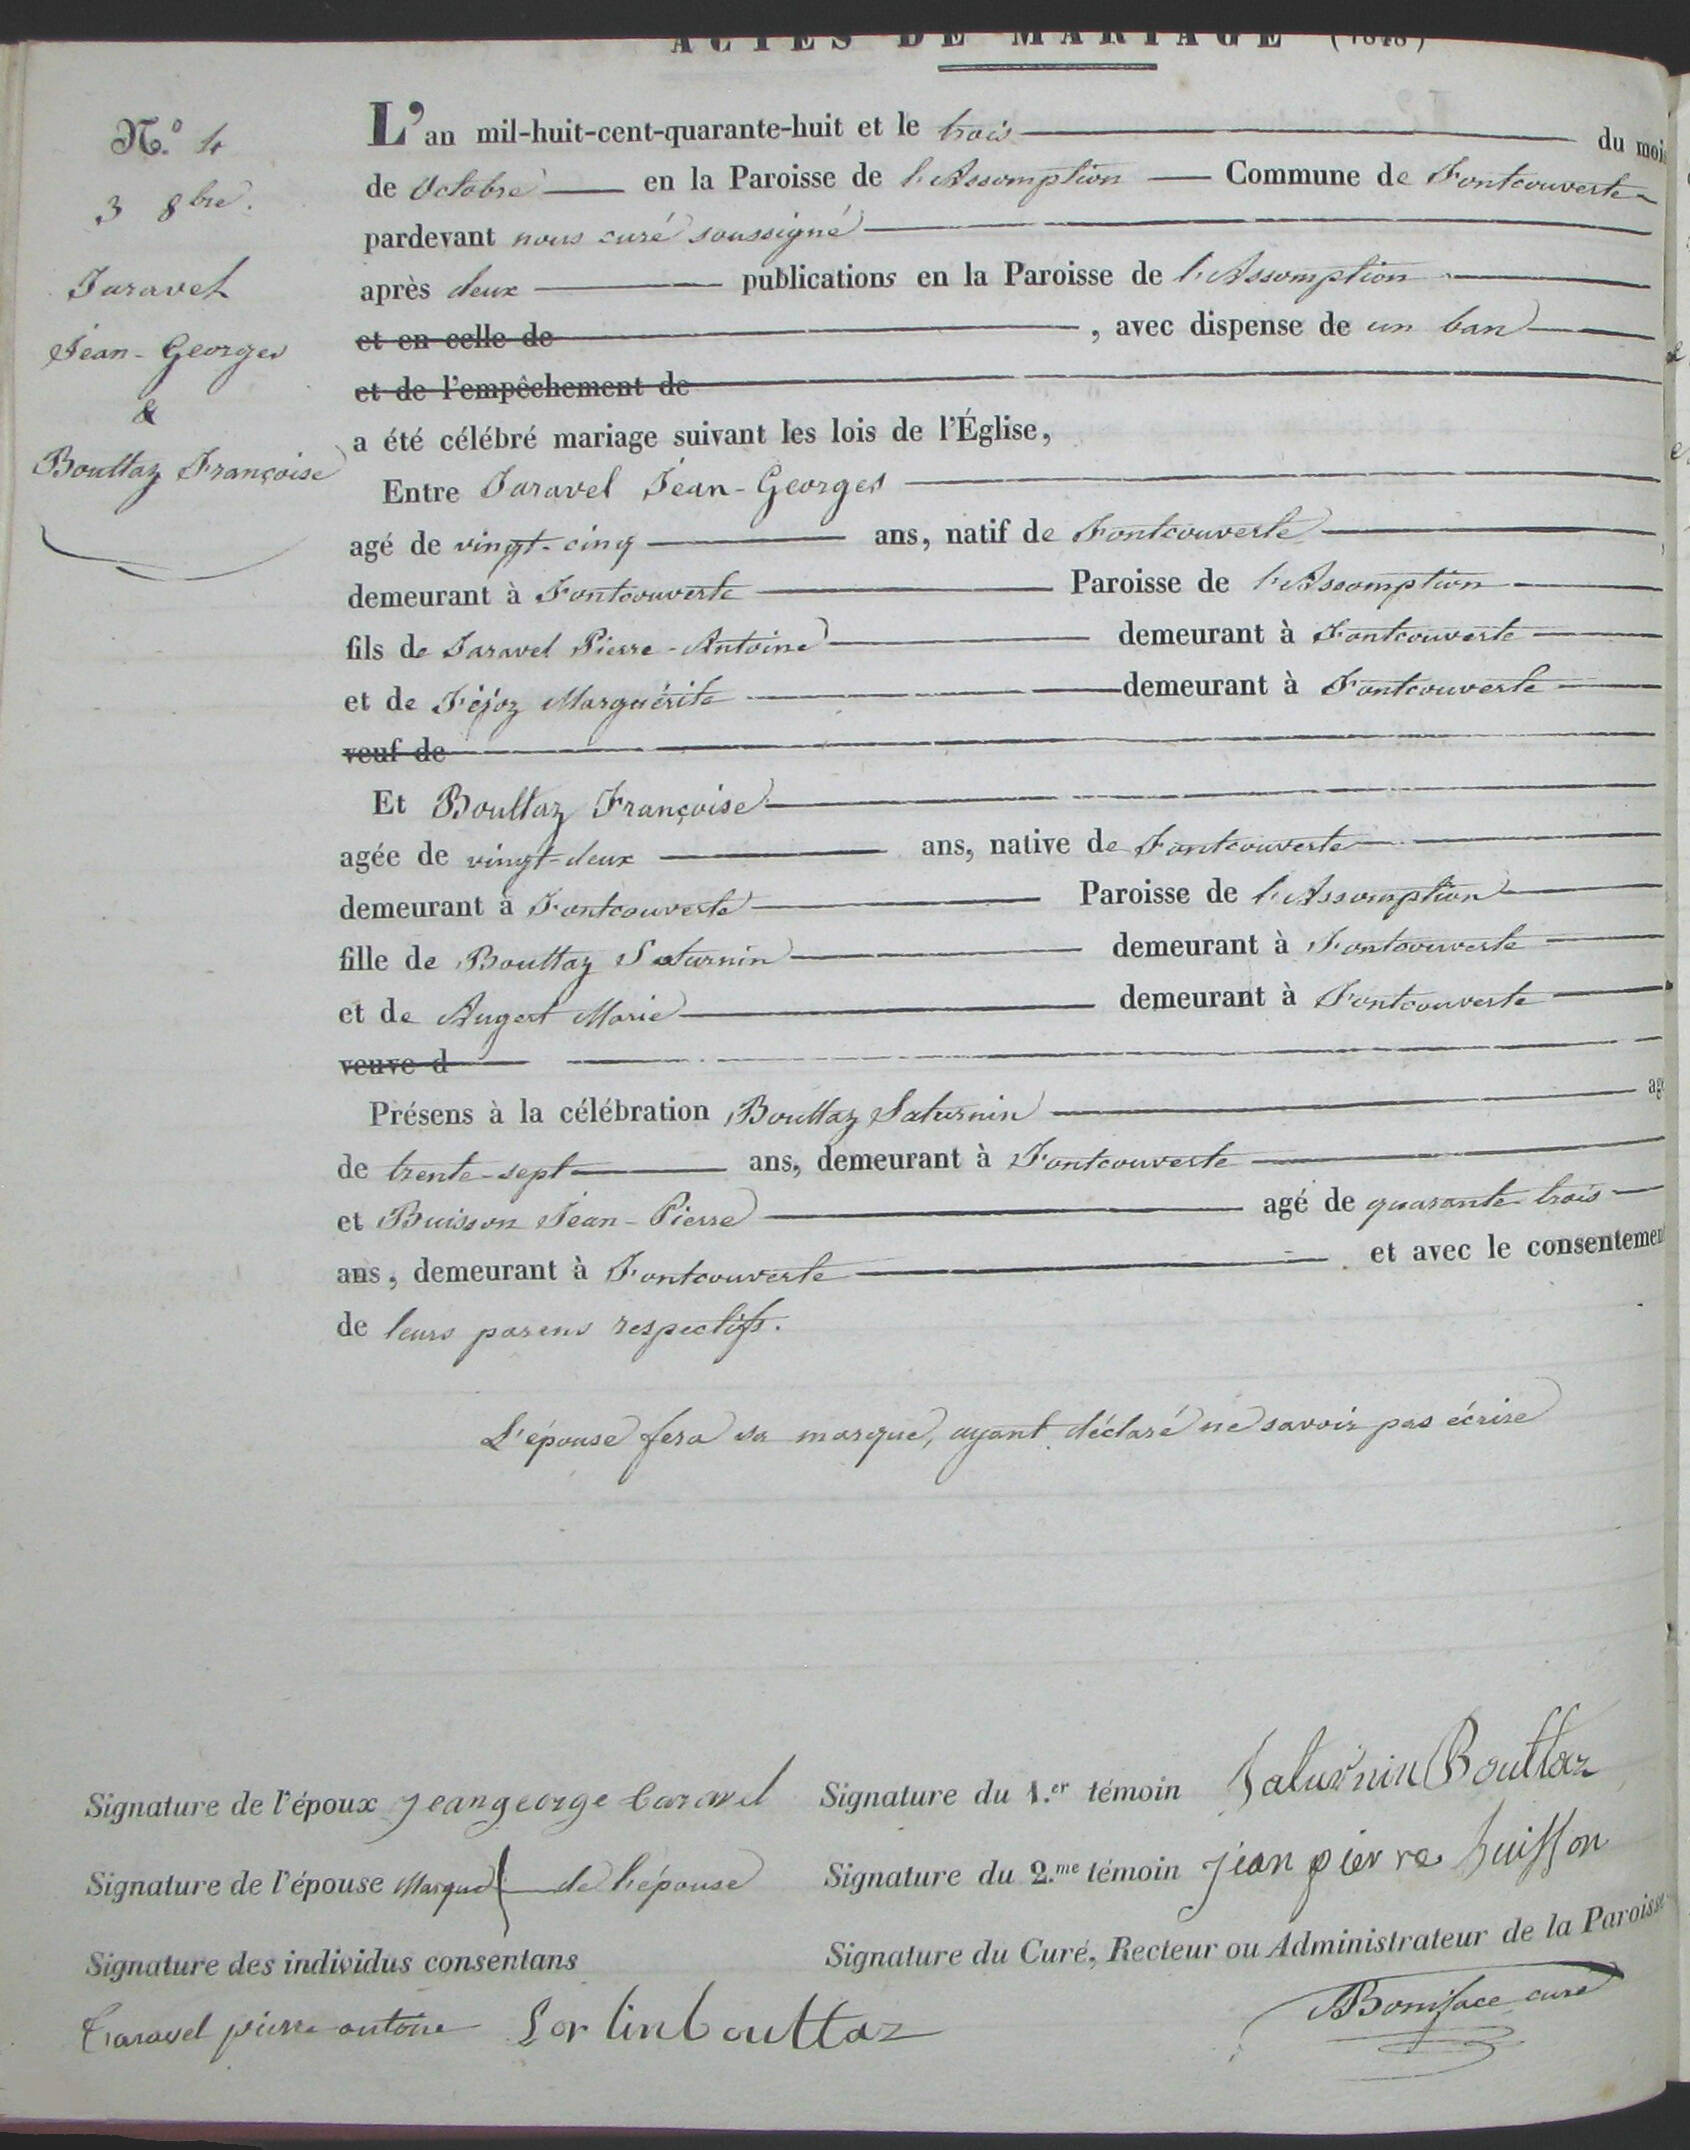 ACTES DE MARIAGE (1848)
N.º 4
3 8bre.
Taravel
Jean-Georges
&
Bouttaz Françoise
L'an mil-huit-cent-quarante-huit et le trois du mois
de Octobre en la Paroisse de l'Assomption Commune de Fontcouverte
pardevant nous curé soussigné
après deux publications en la Paroisse de l'Assomption
et en celle de , avec dispense de un ban
et de l'empêchement de
a été célébré mariage suivant les lois de l'Église,
Entre Taravel Jean-Georges
agé de vingt-cinq ans, natif de Fontcouverte
demeurant à Fontcouverte Paroisse de l'Assomption
fils de Taravel Pierre-Antoine demeurant à Fontcouverte
et de Féjoz Marguérite demeurant à Fontcouverte
veuf de
Et Bouttaz Françoise
agée de vingt-deux ans, native de Fontcouverte
demeurant à Fontcouverte Paroisse de l'Assomption
fille de Bouttaz Saturnin demeurant à Fontcouverte
et de Augert Marie demeurant à Fontcouverte
veuve d
Présens à la célébration Bouttaz Saturnin agé
de trente-sept ans, demeurant à Fontcouverte
et Buisson Jean-Pierre agé de quarante trois
ans, demeurant à Fontcouverte et avec le consentement
de leurs parens respectifs.
L'épouse fera sa marque, ayant déclaré ne savoir pas écrire
Signature de l'époux jean george taravel Signature du 1.er témoin Saturnin Bouttaz
Signature de l'épouse Marque de l'épouse Signature du 2.me témoin jean pierre buisson
Signature des individus consentans Signature du Curé, Recteur ou Administrateur de la Paroisse
taravel pierre antoine Sorlin bouttaz Boniface curé